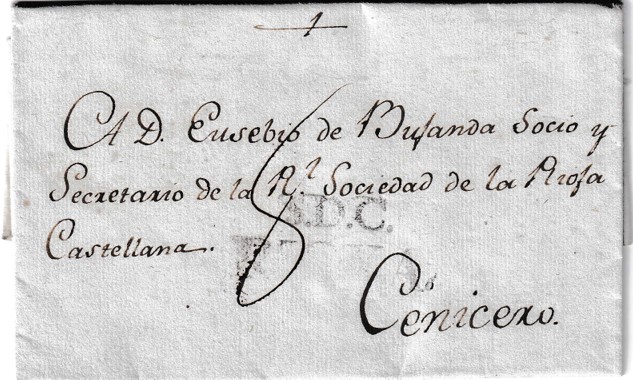 A D. Eusebio de Bujanda Socio y
Secretario de la R.l Sociedad de la Rioja
Castellana.
S.D.C.
Cenicero.